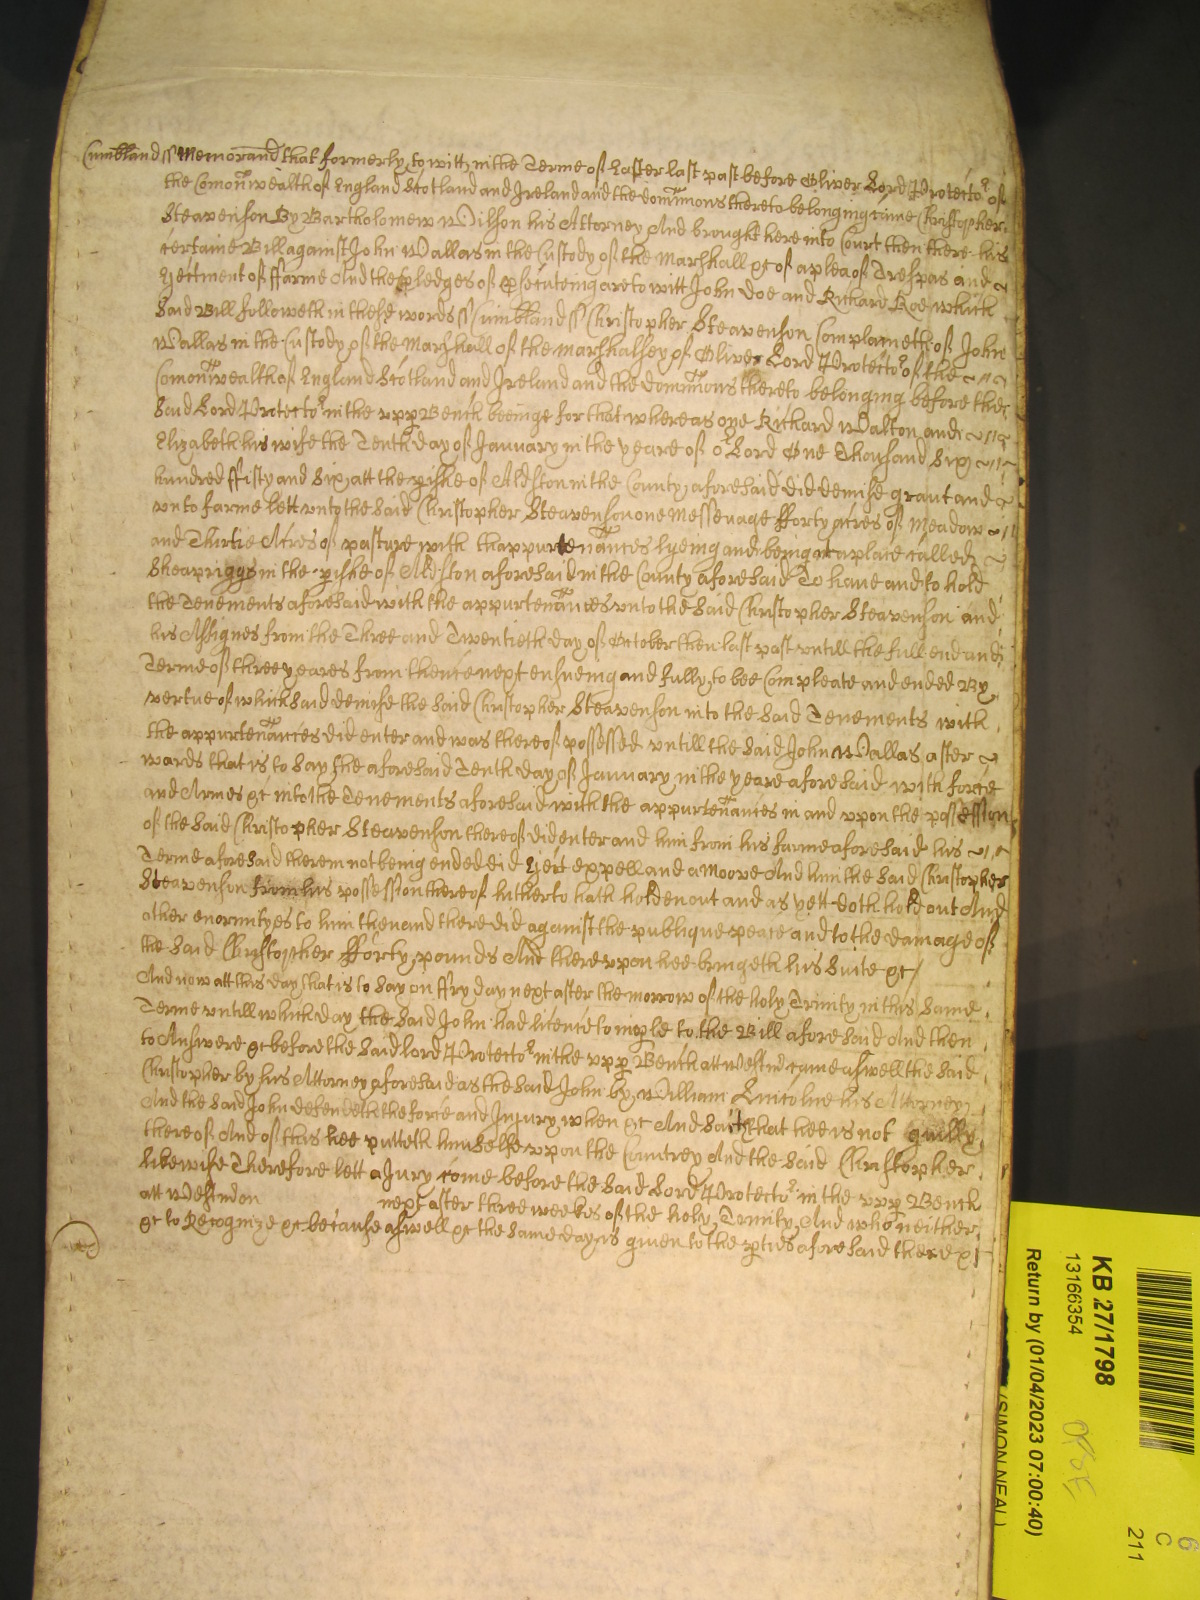 Cumbland ss Memorand that formerly to witt in the Terme of Easter last past before Oliver Lord Protector of
the Comonwealth of England Scotland and Ireland and the dominions thereto belonging came Christopher
Steavenson By Bartholomew Wilson his Attorney And brought here into Court then there his
certaine Bill against John Wallas in the Custody of the Marshall &c of a plea of Trespas and
Ejectment of ffarme And the pledges of psecuteing are to witt John Doe and Richard Roe which
Said Bill followeth in these words ss Cumbland ss Christopher Steavenson Complaineth of John
Wallas in the Custody of the Marshall of the Marshalsey of Oliver Lord Protector of the
Comonwealth of England Scotland and Ireland and the dominions thereto belonging before the
Said Lord Protector in the upp Bench beeinge for that whereas one Richard Walton and
Elizabeth his wife the Tenth day of January in the yeare of or Lord One Thousand Six
hundred ffifty and Six att the pishe of Aldston in the County aforesaid did demise grant and
unto farme lett unto the said Christopher Steavenson one Messeuage fforty Acres of Meadow
and Thirtie Acres of pasture with thappurtenances lyeing and being in a place called
Sheapriggs in the pishe of Aldston aforesaid in the County aforesaid To have and to hold
the Tenements aforesaid with the appurtenances unto the said Christopher Steavenson and
his Assignes from the Three and Twentieth day of October then last past untill the full end and
Terme of three yeares from thence next ensueing and fully to bee Compleate and ended By
vertue of which Said demise the Said Christopher Steavenson into the Said Tenements with
the appurtenances did enter and was thereof possessed untill the Said John Wallas after
wards that is to Say the aforesaid Tenth day of January in the yeare aforesaid with force
and Armes &c into the Tenements aforesaid with the appurtenances in and upon the possession
of the Said Christopher Steavenson thereof did enter and him from his farme aforesaid his
Terme aforesaid therein not being ended did Eject expell and amoove And him the Said Christopher
Steavenson from his possession thereof hitherto hath holden out and as yett doth hold out And
other enormityes to him then and there did against the publique peace and to the damage of
the Said Christopher fforty pounds And thereupon hee bringeth his Suite &c
And now att this day that is to Say on ffryday next after the morrow of the holy Trinity in this Same
Terme untill which day the Said John had licence to imple to the Bill aforesaid And then
to Answere &c before the Said lord Protector in the upp Bench att Westm came aswell the Said
Christopher by his Attorney aforesaid as the Said John by William Lincolne his Attorney
And the Said John defendeth the force and Injury when &c And Saith that hee is not guilty
thereof And of this hee putteth himselfe upon the Countrey And the Said Christopher
likewise Therefore lett a Jury come before the Said Lord Protector in the upp Bench
att Westm on next after three weekes of the holy Trinity And who neither
&c to Recognize &c because aswell &c the Same day is given to the pties aforesaid there &c
KB 27/1798
13166354
Return by (01/04/2023 07:00:40)
(SIMON NEAL)
6
C
211